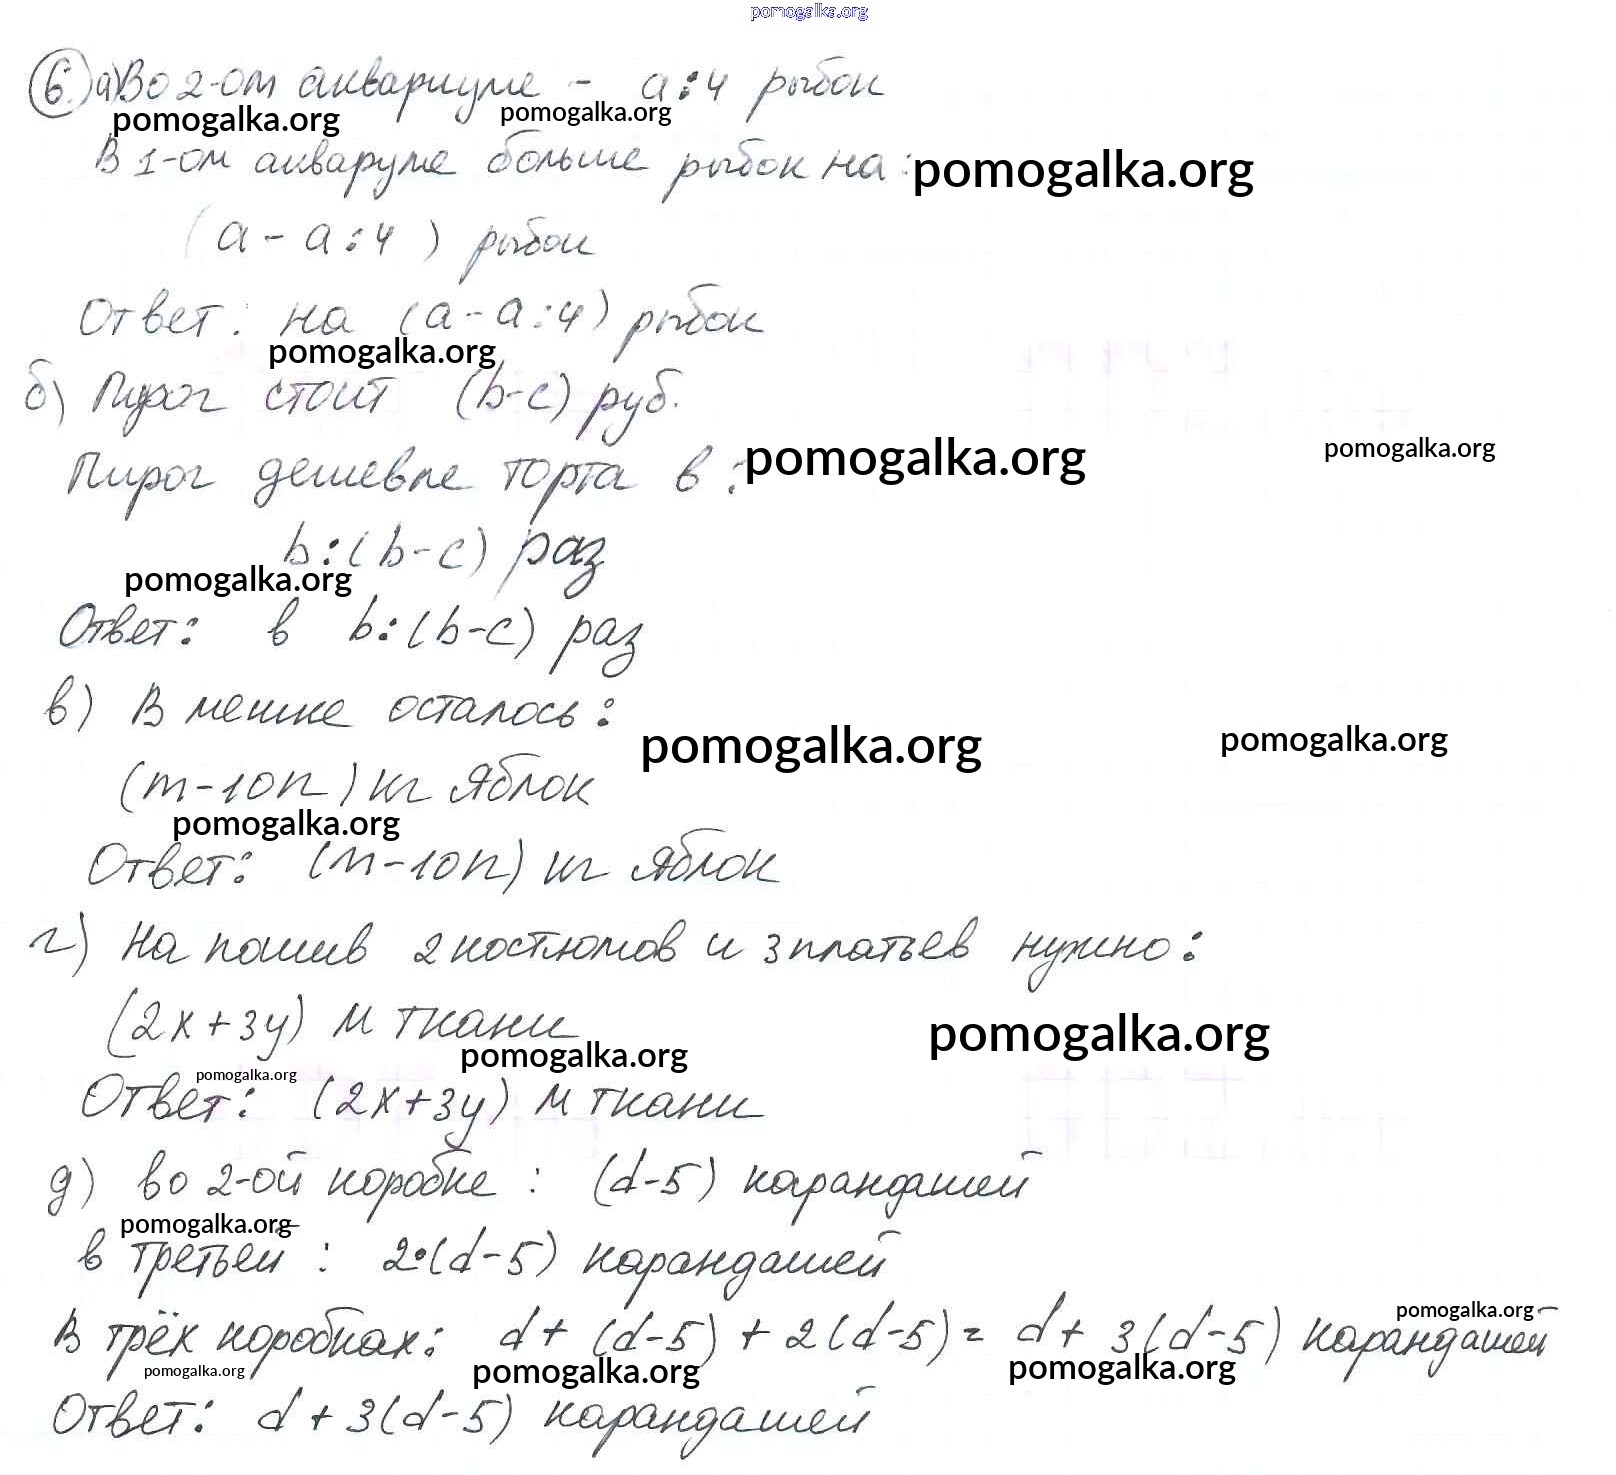 pomogalka.org
6. а) Во 2-ом аквариуме - a : 4 рыбок
pomogalka.org pomogalka.org
В 1-ом акваруме больше рыбок на: pomogalka.org
(a - a : 4) рыбок
Ответ: на (a - a : 4) рыбок
pomogalka.org
б) Пирог стоит (b-c) руб.
pomogalka.org
Пирог дешевле торта в : pomogalka.org
b : (b-c) раз
pomogalka.org
Ответ: в b : (b-c) раз
в) В мешке осталось:
pomogalka.org pomogalka.org
(m-10n) кг яблок
pomogalka.org
Ответ: (m-10n) кг яблок
г) На пошив 2 костюмов и 3 платьев нужно:
(2x+3y) м ткани pomogalka.org
pomogalka.org
pomogalka.org
Ответ: (2x+3y) м ткани
д) во 2-ой коробке : (d-5) карандашей
pomogalka.org
в третьей : 2·(d-5) карандашей
pomogalka.org
В трёх коробках: d + (d-5) + 2(d-5) = d + 3(d-5) карандашей
pomogalka.org pomogalka.org pomogalka.org
Ответ: d + 3(d-5) карандашей